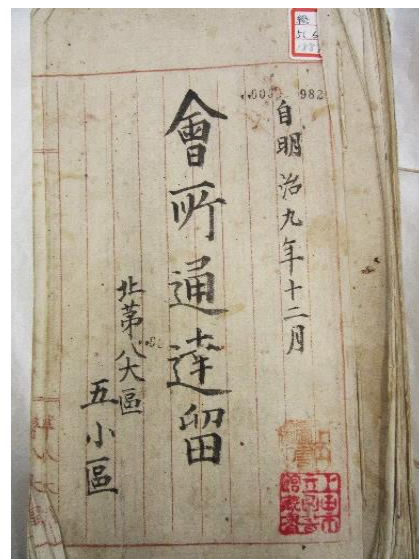 自明治九年十二月
會所通達留
北第八大區
五小區
982